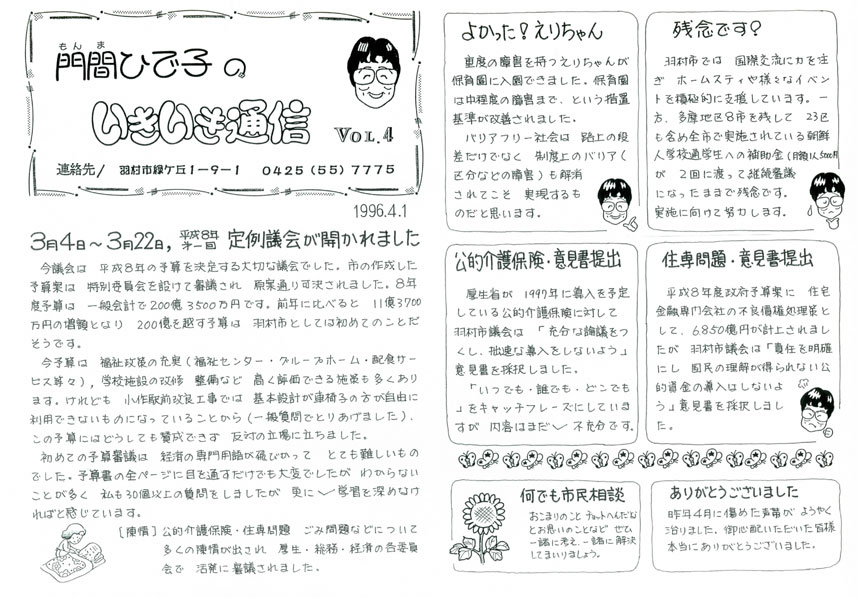 もんま
門間ひで子の
いきいき通信 VOL.4
連絡先/ 羽村市緑ケ丘1-9-1 0425(55)7775
1996.4.1
3月4日~3月22日, 平成8年第一回 定例議会が開かれました
今議会は 平成8年の予算を決定する大切な議会でした。市の作成した
予算案は 特別委員会を設けて審議され 原案通り可決されました。8年
度予算は 一般会計で200億3500万円です。前年に比べると 11億3700
万円の増額となり 200億を越す予算は 羽村市としては初めてのことだ
そうです。
今予算は 福祉政策の充実(福祉センター・グループホーム・配食サー
ビス等々),学校施設の改修 整備など 高く評価できる施策も多くあり
ます。けれども 小作駅前改良工事では 基本設計が車椅子の方が自由に
利用できないものになっていることから(一般質問でとりあげました),
この予算にはどうしても賛成できず 反対の立場に立ちました。
初めての予算審議は 経済の専門用語が飛びかって とても難しいもの
でした。予算書の全ページに目を通すだけでも大変でしたが わからない
ことが多く 私も30個以上の質問をしましたが 更に 学習を深めなけ
ればと感じています。
[陳情]公的介護保険・住専問題 ごみ問題などについて
多くの陳情が出され 厚生・総務・経済の各委員
会で 活発に審議されました。
よかった!えりちゃん
重度の障害を持つえりちゃんが
保育園に入園できました。保育園
は中程度の障害まで、という措置
基準が改善されました。
バリアフリー社会は 路上の段
差だけでなく 制度上のバリア(
区分などの障害)も解消
されてこそ 実現するも
のだと思います。
残念です?
羽村市では 国際交流に力を注
ぎ ホームスティや様々なイベン
トを積極的に支援しています。一
方、多摩地区8市を残して 23区
も含め全市で実施されている朝鮮
人学校通学生への補助金(月額1人5000円)
が 2回に渡って継続審議
になったままで残念です。
実施に向けて努力します。
公的介護保険・意見書提出
厚生省が 1997年に導入を予定
している公的介護保険に対して
羽村市議会は 「充分な論議をつ
くし、拙速な導入をしないよう」
意見書を採択しました。
「いつでも・誰でも・どこでも
」をキャッチフレーズにしていま
すが 内容はまだ 不充分です。
住専問題・意見書提出
平成8年度政府予算案に 住宅
金融専門会社の不良債権処理策と
して、6850億円が計上されました
が 羽村市議会は「責任を明確
にし 国民の理解が得られない公
的資金の導入はしないよ
う」意見書を採択しまし
た。
何でも市民相談
おこまりのこと チョットへんだな
とお思いのことなど ぜひ
一緒に考え、一緒に解決
してまいりましょう。
ありがとうございました
昨年4月に傷めた声帯が ようやく
治りました。御心配いただいた皆様
本当にありがとうございました。